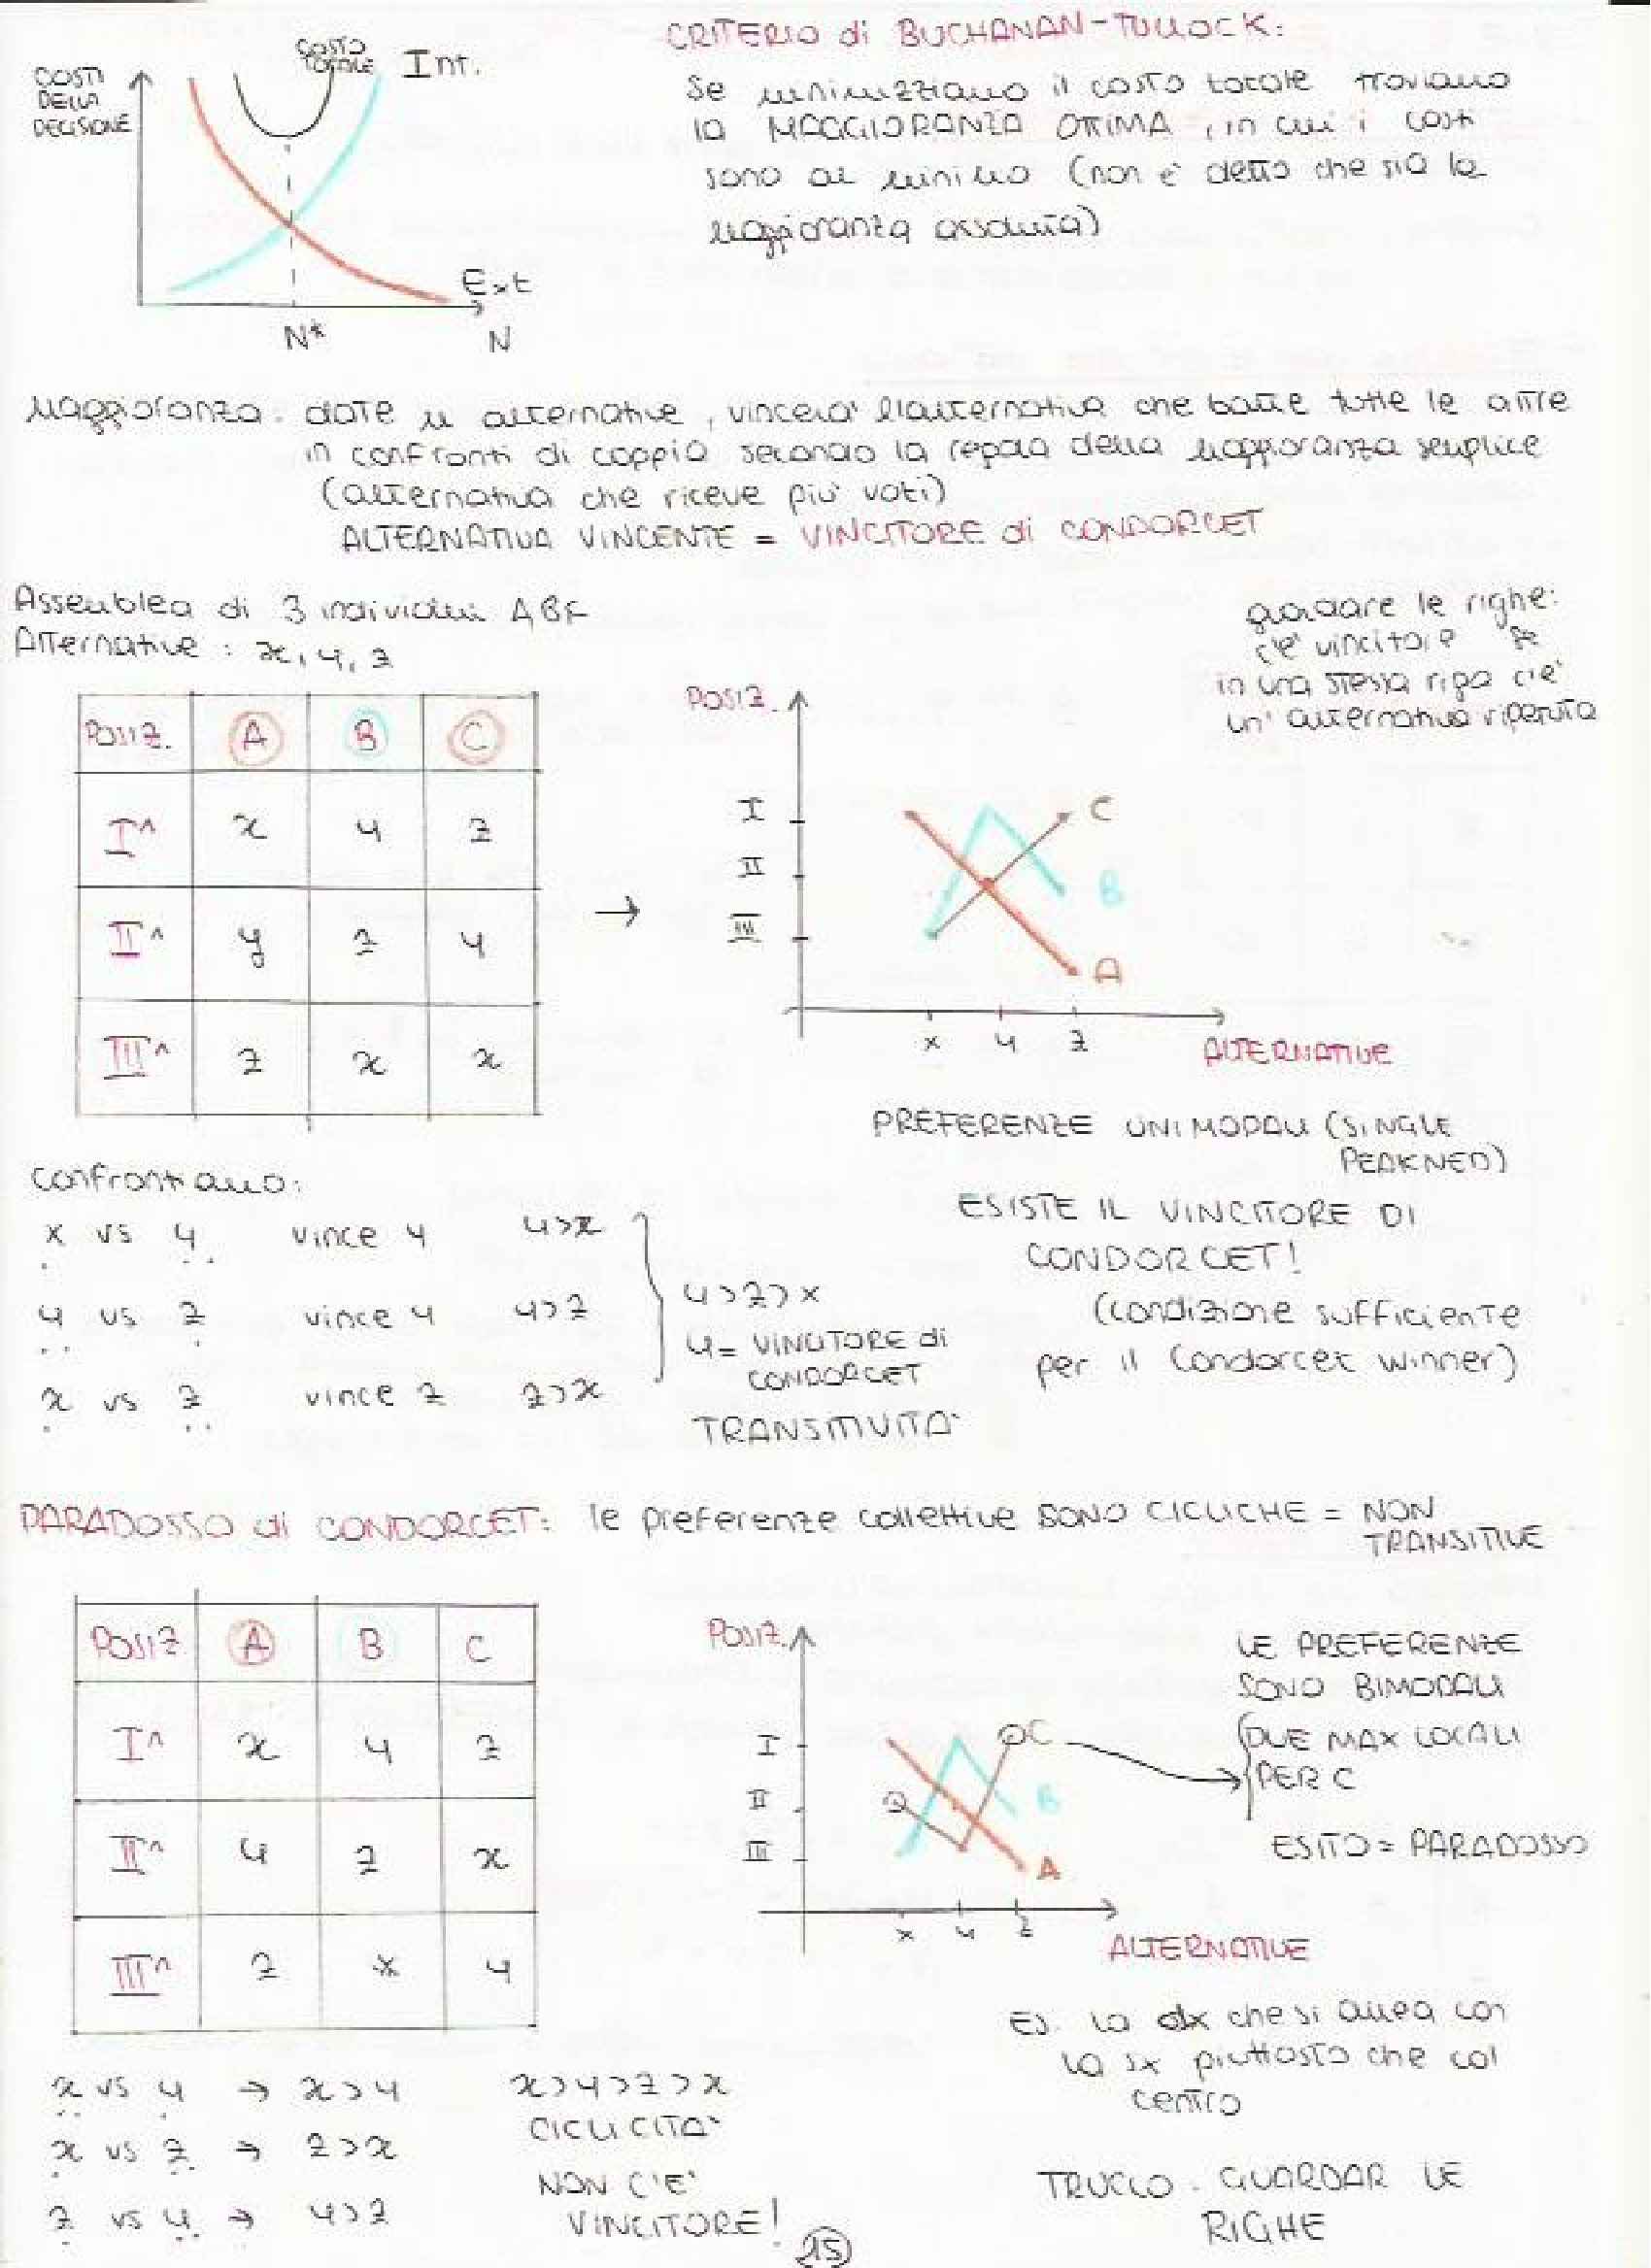 COSTI
DELLA
DECISIONE
COSTO
TOTALE
Int.
Ext
N*
N
CRITERIO di BUCHANAN-TULLOCK:
Se minimizziamo il costo totale troviamo
la MAGGIORANZA OTTIMA, in cui i costi
sono al minimo (non è detto che sia la
maggioranza assoluta)
Maggioranza. date m alternative, vincerà l'alternativa che batte tutte le altre
in confronti di coppia secondo la regola della maggioranza semplice
(alternativa che riceve più voti)
ALTERNATIVA VINCENTE = VINCITORE di CONDORCET
Assemblea di 3 individui ABC
Alternative: x, y, z
guardare le righe:
c'è vincitore se
in una stessa riga c'è
un'alternativa ripetuta
POSIZ. A B C
I^ x y z
II^ y z y
III^ z x x
→
POSIZ.
I
II
III
C
B
A
x y z
ALTERNATIVE
PREFERENZE UNIMODALI (SINGLE
PEAKNED)
Confrontiamo:
x vs y vince y y>x
y vs z vince y y>z
x vs z vince z z>x
y>z>x
y = VINCITORE di
CONDORCET
TRANSITIVITÀ
ESISTE IL VINCITORE DI
CONDORCET!
(condizione sufficiente
per il Condorcet winner)
PARADOSSO di CONDORCET: le preferenze collettive SONO CICLICHE = NON
TRANSITIVE
POSIZ A B C
I^ x y z
II^ y z x
III^ z x y
POSIZ.
I
II
III
C
B
A
x y z
ALTERNATIVE
LE PREFERENZE
SONO BIMODALI
(DUE MAX LOCALI
PER C
ESITO = PARADOSSO
Es. la dx che si allea con
la sx piuttosto che col
centro
x vs y → x>y
x vs z → z>x
z vs y → y>z
x>y>z>x
CICLICITÀ
NON C'È
VINCITORE!
TRUCCO. GUARDAR LE
RIGHE
15